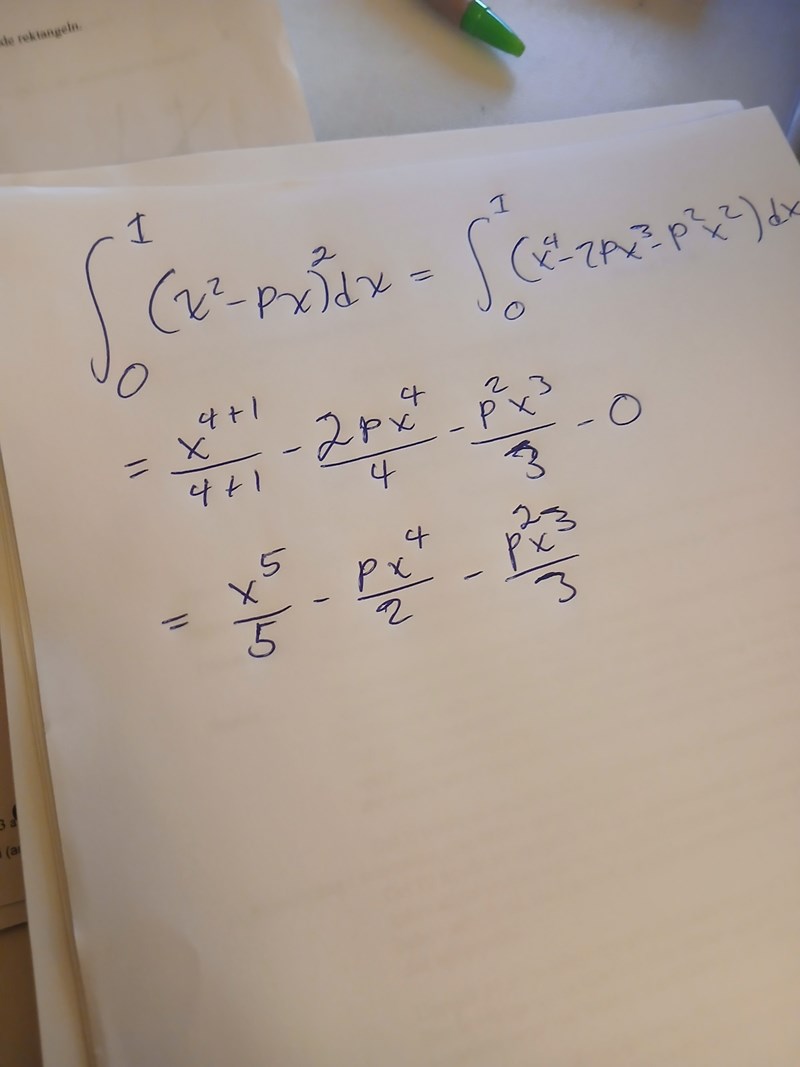 de rektangeln.
∫₀¹ (x² - px)² dx = ∫₀¹ (x⁴ - 2px³ - p²x²) dx
= x⁴⁺¹/4+1 - 2px⁴/4 - p²x³/3 - 0
= x⁵/5 - px⁴/2 - p²x³/3